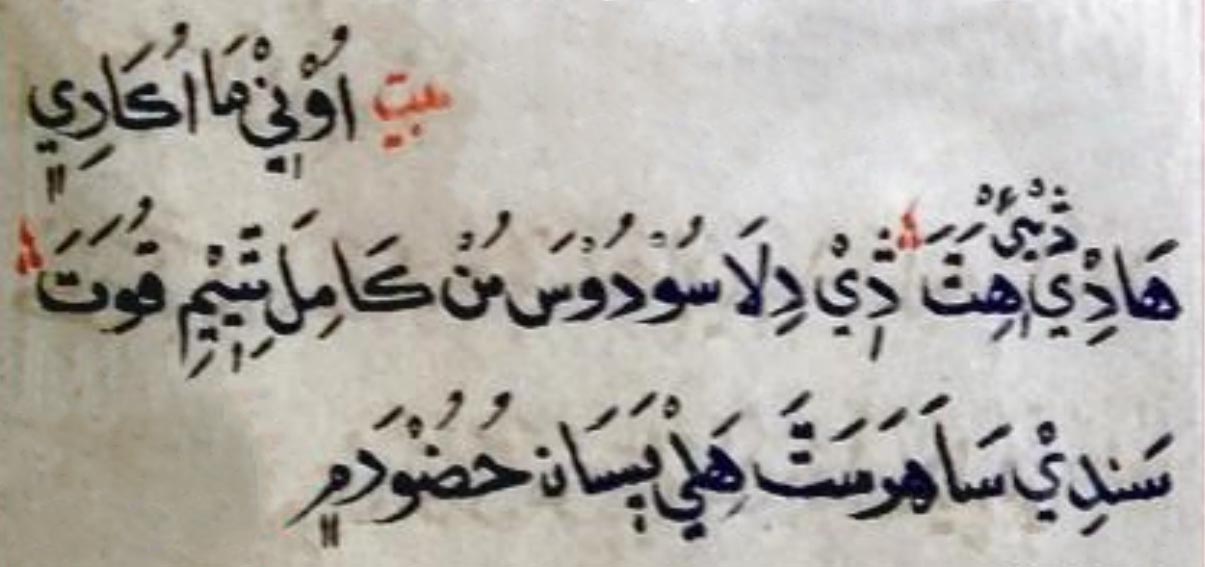 بيت اُوْنِيْ مَا اُكَارِي
هَادِيْ اِهِتَ ذِيْ دِلَا سُوْدُوْسَ مُنْ كَامِلَ تِيِيْمِ قُوَتَ
سَندِيْ سَا هَرَسَتَّ هِلِيْ پِسَان حُضُوْرَمِ